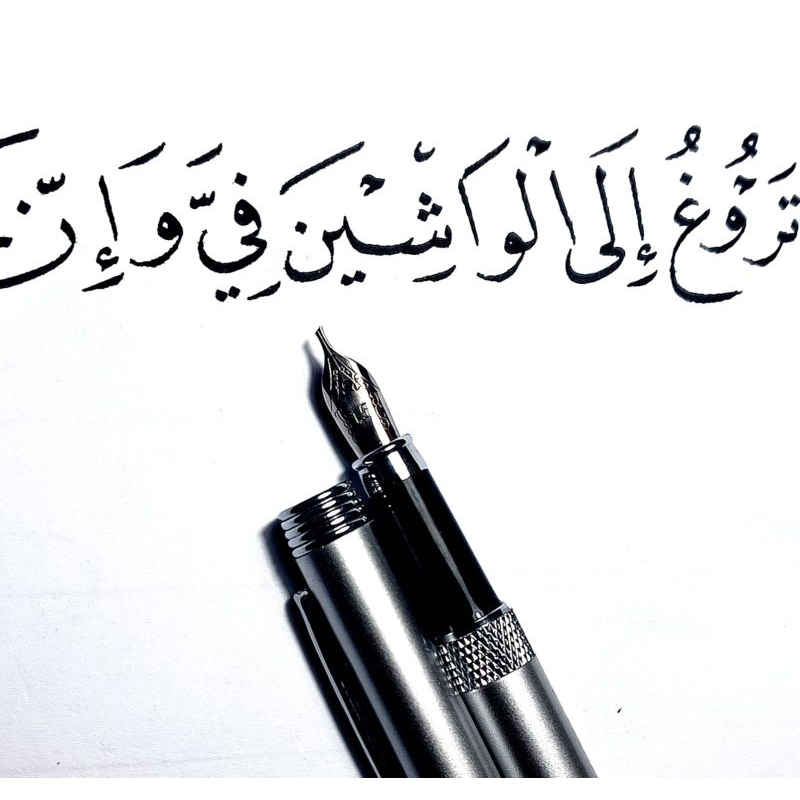 تَرُوْغُ إِلَى الْوَاشِيْنَ فِيَّ وَإِنَّ